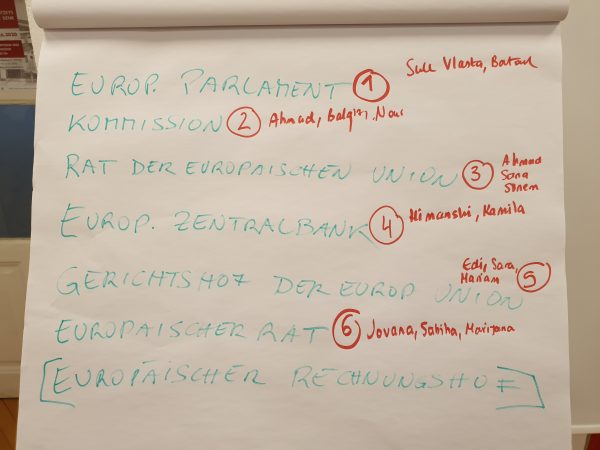 EUROP. PARLAMENT 1 Sule Vlasta, Batoul
KOMMISSION 2 Ahmad, Balqi
RAT DER EUROPAISCHEN UNION 3 Ahmad
Sana
Sinem
EUROP. ZENTRALBANK 4 Himanshi, Kamila
GERICHTSHOF DER EUROP UNION 5 Edi, Sara,
Mariam
EUROPAISCHER RAT 6 Jovana, Sabiha, Marijana
[EUROPÄISCHER RECHNUNGSHOF]